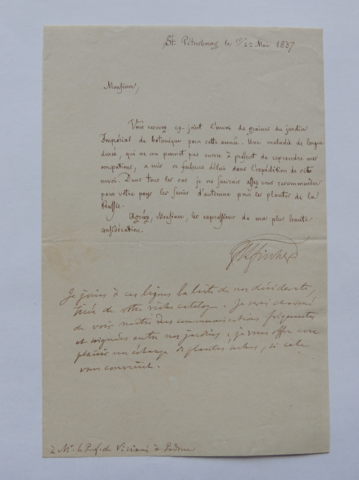 St. Pétersbourg le 10/22 Mai 1837
Monsieur,
Vous recevez ci-joint l'envoi de graines du jardin
Impérial de botanique pour cette année. Une maladie de longue
durée, qui ne me permit pas encore à présent de reprendre mes
occupations, a mis ce fâcheux délai dans l'expédition de cet
envoi. Dans tous les cas je ne saurais assez vous recommander
pour votre pays les semis d'automne pour les plantes de la
Agréez, Monsieur, les expressions de ma plus haute
considération.
Fischer
Je joins à ces lignes la liste de nos desiderata,
tirée de votre riche catalogue. Je serai charmé
de voir naître des communications fréquentes
et soignées entre nos jardins, je vous offre avec
plaisir un échange de plantes sèches, si cela
vous convient.
à Mr. le Prof. de Visiani à Padoue